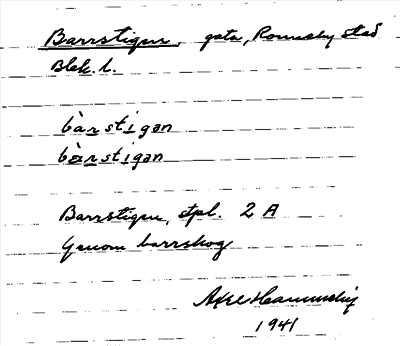 Barrstigen, gata, Ronneby stad
Blek. l.
bàrstigən
bàrstigən
Barrstigen, stpl. 2 A
Genom barrskog
Axel Hammarberg
1941